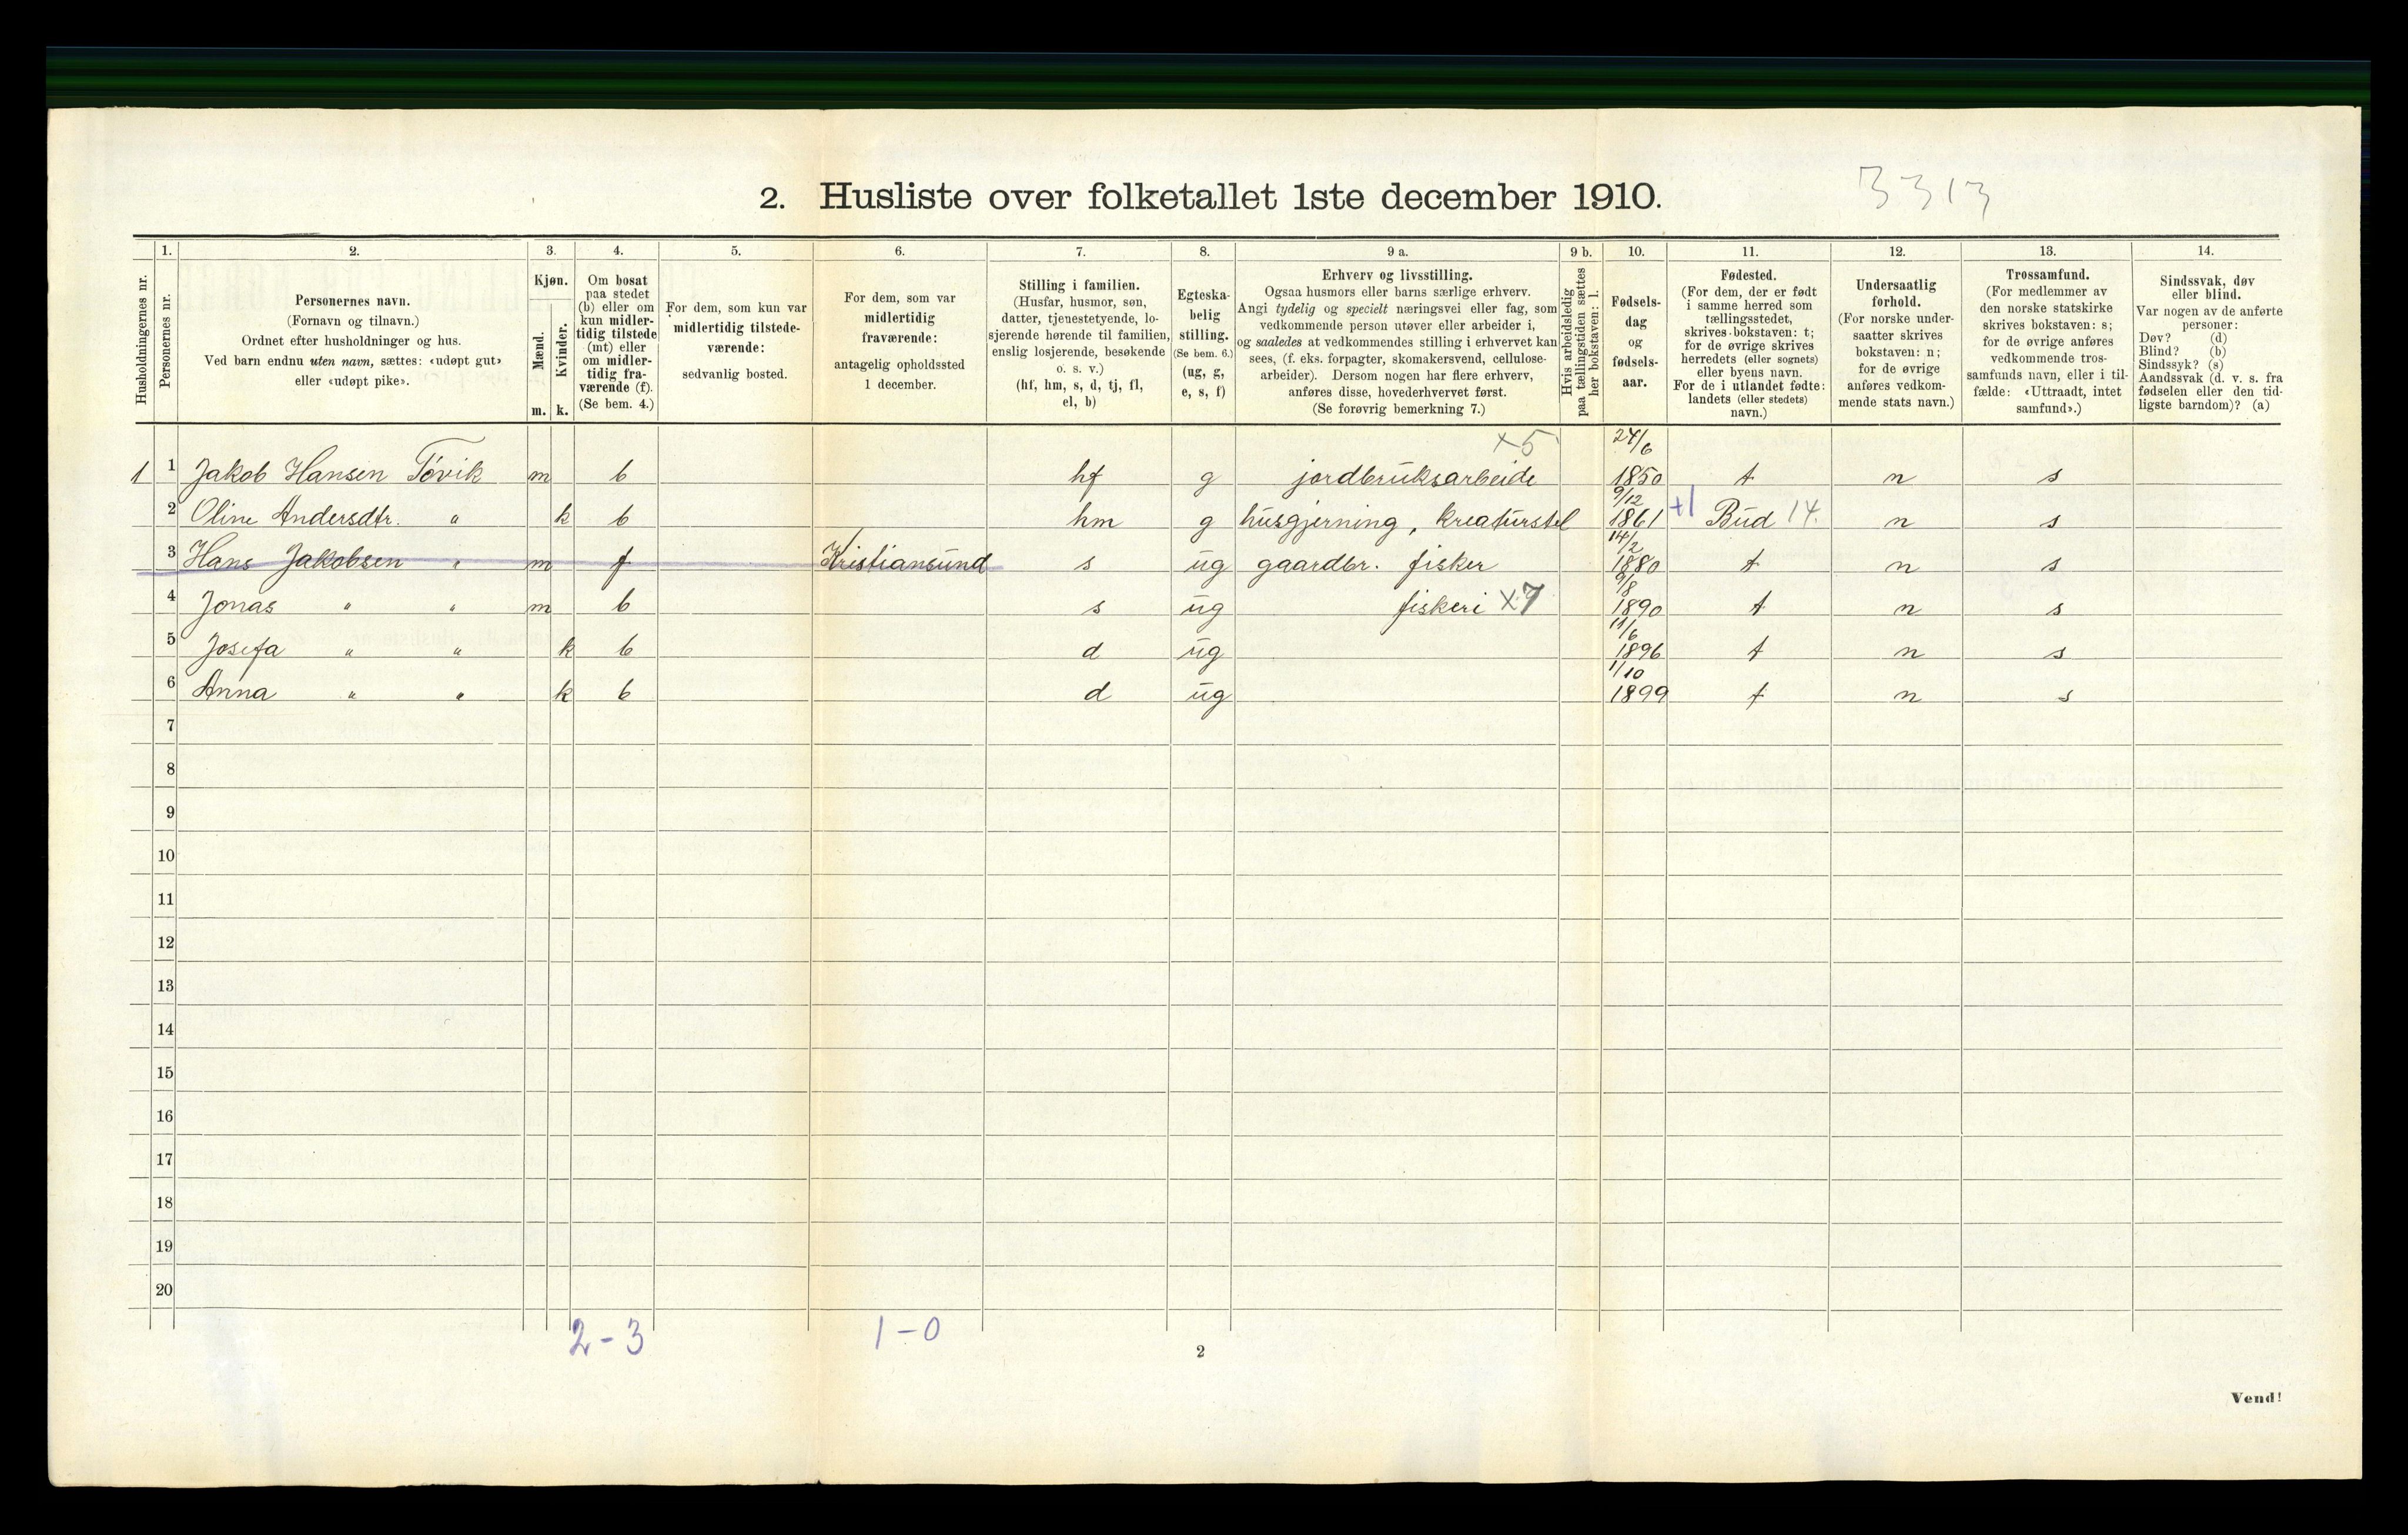 3313
2. Husliste over folketallet 1ste december 1910.
Husholdningernes nr.
1.
Personernes nr.
2.
Personernes navn.
(Fornavn og tilnavn.)
Ordnet efter husholdninger og hus.
Ved barn endnu uten navn, sættes: «udøpt gut»
eller «udøpt pike».
3.
Kjøn.
Mænd.
Kvinder.
m. k.
4.
Om bosat
paa stedet
(b) eller om
kun midler-
tidig tilstede
(mt) eller
om midler-
tidig fra-
værende (f).
(Se bem. 4.)
5.
For dem, som kun var
midlertidig tilstede-
værende:
sedvanlig bosted.
6.
For dem, som var
midlertidig
fraværende:
antagelig opholdssted
1 december.
7.
Stilling i familien.
(Husfar, husmor, søn,
datter, tjenestetyende, lo-
sjerende hørende til familien,
enslig losjerende, besøkende
o. s. v.)
(hf, hm, s, d, tj, fl,
el, b)
8.
Egteska-
belig
stilling.
(Se bem. 6.)
(ug, g,
e, s, f)
9 a.
Erhverv og livsstilling.
Ogsaa husmors eller barns særlige erhverv.
Angi tydelig og specielt næringsvei eller fag, som
vedkommende person utøver eller arbeider i,
og saaledes at vedkommendes stilling i erhvervet kan
sees, (f. eks. forpagter, skomakersvend, cellulose-
arbeider). Dersom nogen har flere erhverv,
anføres disse, hovederhvervet først.
(Se forøvrig bemerkning 7.)
9 b.
Hvis arbeidsledig
paa tællingstiden sættes
her bokstaven: l.
10.
Fødsels-
dag
og
fødsels-
aar.
11.
Fødested.
(For dem, der er født
i samme herred som
tællingsstedet,
skrives bokstaven: t;
for de øvrige skrives
herredets (eller sognets)
eller byens navn.
For de i utlandet fødte:
landets (eller stedets)
navn.)
12.
Undersaatlig
forhold.
(For norske under-
saatter skrives
bokstaven: n;
for de øvrige
anføres vedkom-
mende stats navn.)
13.
Trossamfund.
(For medlemmer av
den norske statskirke
skrives bokstaven: s;
for de øvrige anføres
vedkommende tros-
samfunds navn, eller i til-
fælde: «Uttraadt, intet
samfund».)
14.
Sindssvak, døv
eller blind.
Var nogen av de anførte
personer:
Døv? (d)
Blind? (b)
Sindssyk? (s)
Aandssvak (d. v. s. fra
fødselen eller den tid-
ligste barndom)? (a)
×5 24/6
1 1 Jakob Hansen Tövik m b hf g jordbruksarbeide 1850 t n s
9/12
2 Oline Andersdtr. " k b hm g husgjerning, kreaturstel 1861 +1 Bud 14. n s
14/2
3 Hans Jakobsen " m f Kristiansund s ug gaardbr. fisker 1880 t n s
9/8
4 Jonas " " m b s ug fiskeri ×7 1890 t n s
11/6
5 Josefa " " k b d ug 1896 t n s
1/10
6 Anna " " k b d ug 1899 t n s
7
8
9
10
11
12
13
14
15
16
17
18
19
20
2-3 1-0
2
Vend!